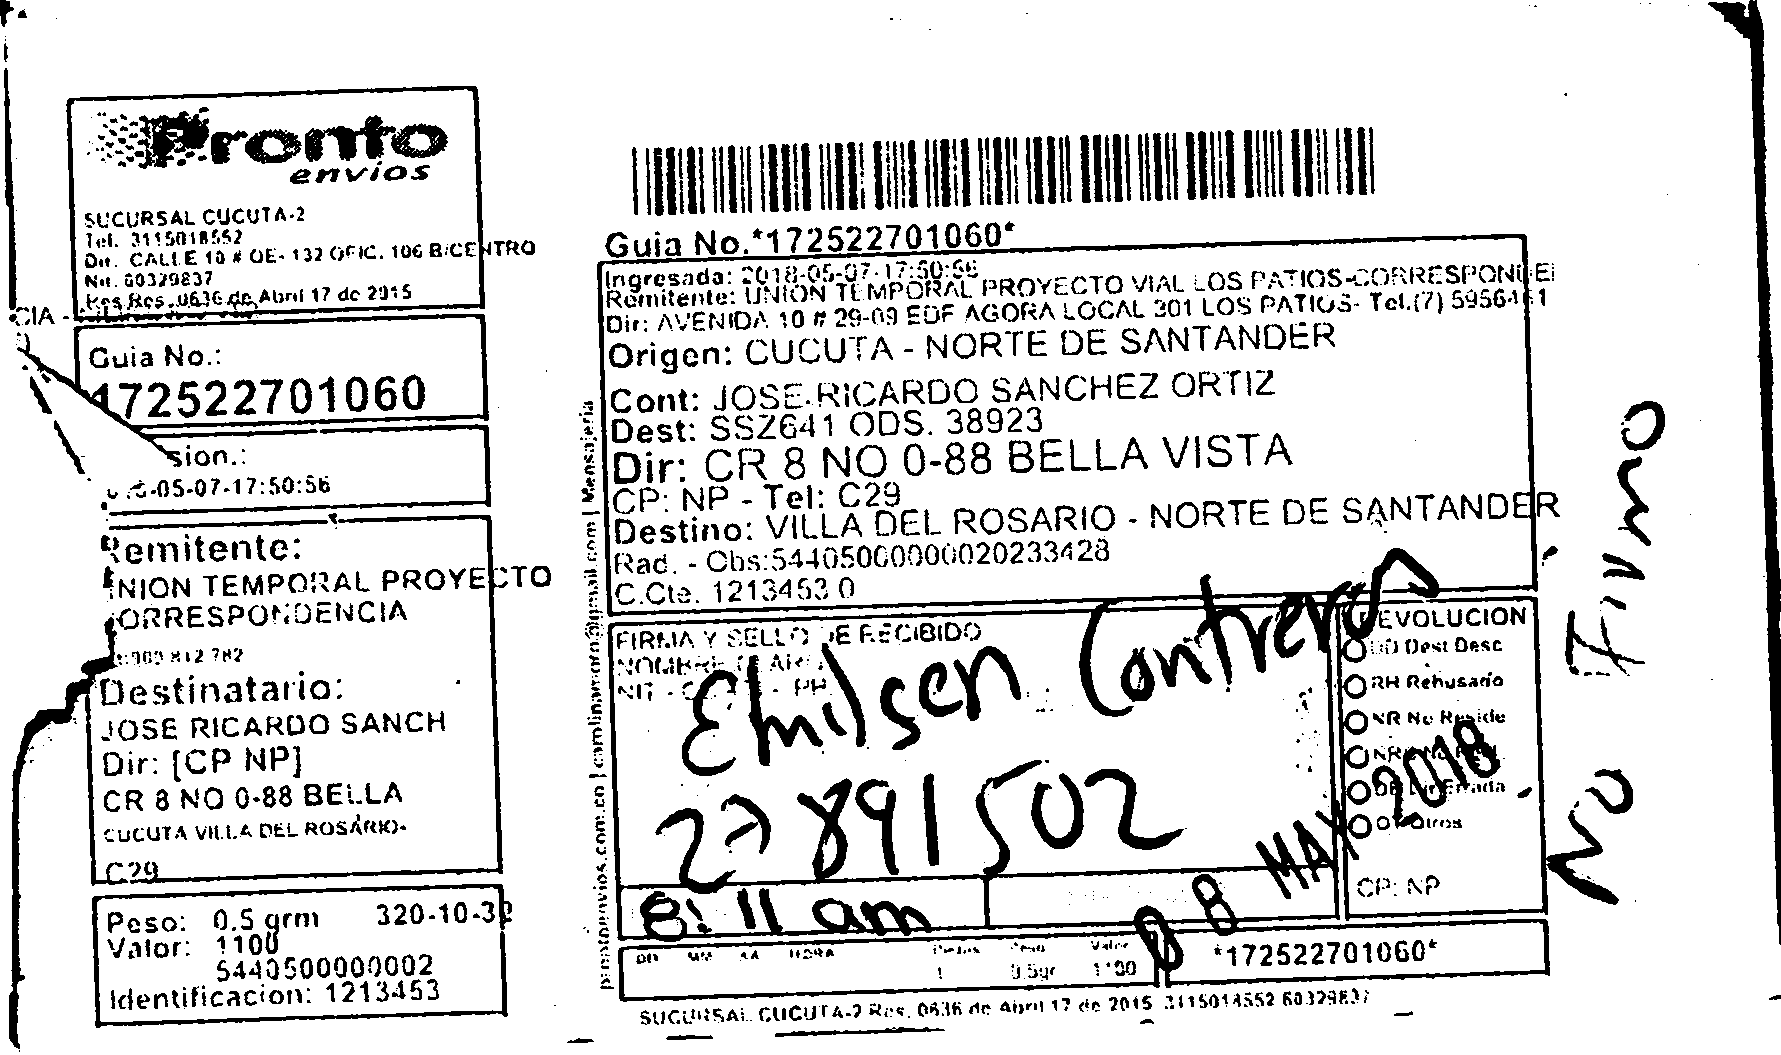 Pronto
envios
SUCURSAL CUCUTA-2
Tel. 3115018552
Dir. CALLE 10 # 0E- 132 OFIC. 106 B/CENTRO
Nit. 60329837
Res Res .0636 de Abril 17 de 2015
CIA -
Guia No.:
172522701060
sion.:
-05-07-17:50:56
Remitente:
NION TEMPORAL PROYECTO
ORRESPONDENCIA
900 812 782
Destinatario:
JOSE RICARDO SANCH
Dir: [CP NP]
CR 8 NO 0-88 BELLA
CUCUTA VILLA DEL ROSARIO-
C29
Peso: 0.5 grm 320-10-32
Valor: 1100
5440500000002
Identificacion: 1213453
Guia No.*172522701060*
Ingresada: 2018-05-07-17:50:56
Remitente: UNION TEMPORAL PROYECTO VIAL LOS PATIOS-CORRESPONDE
Dir: AVENIDA 10 # 29-09 EDF AGORA LOCAL 301 LOS PATIOS- Tel.(7) 5956461
Origen: CUCUTA - NORTE DE SANTANDER
Cont: JOSE RICARDO SANCHEZ ORTIZ
Dest: SSZ641 ODS. 38923
Dir: CR 8 NO 0-88 BELLA VISTA
CP: NP - Tel: C29
Destino: VILLA DEL ROSARIO - NORTE DE SANTANDER
Rad. - Obs:54405000000020233428
C.Cte. 1213453 0
FIRMA Y SELLO DE RECIBIDO
Emilsen Contreras
27891502
8:11 am
DD MM AA HORA
Piezas Peso Valor
1 0.5gr 1100
DEVOLUCION
DD Dest Desc
RH Rehusado
NR No Reside
DE Dir Errada
OT Otros
CP: NP
08 MAY 2018
*172522701060*
SUCURSAL CUCUTA-2 Res. 0636 de Abril 17 de 2015 3115018552 60329837
prontoenvios.com.co | | Mensajeria
No Firmo